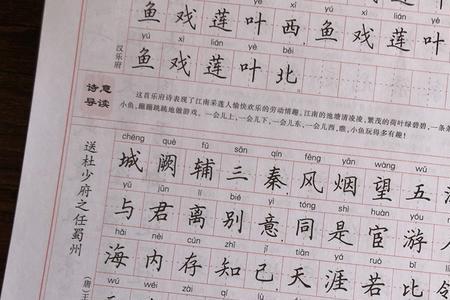 鱼戏莲叶西,鱼戏莲叶
yú xì lián yè běi
鱼戏莲叶北。
汉乐府
诗意导读
这首乐府诗表现了江南采莲人愉快欢乐的劳动情趣。江南的池塘清凌凌,繁茂的荷叶绿碧碧,一条
小鱼,蹦蹦跳跳地做游戏,一会儿上,一会儿下,一会儿东,一会儿西,瞧,小鱼玩得多有趣!
送杜少府之任蜀州
(唐)王
chéng què fǔ sān qín fēng yān wàng wǔ
城阙辅三秦,风烟望五
yǔ jūn lí bié yì tóng shì huàn yóu
与君离别意,同是宦游人
hǎi nèi cún zhī jǐ tiān yá ruò bǐ
海内存知己,天涯若比
wú wéi zài qí lù